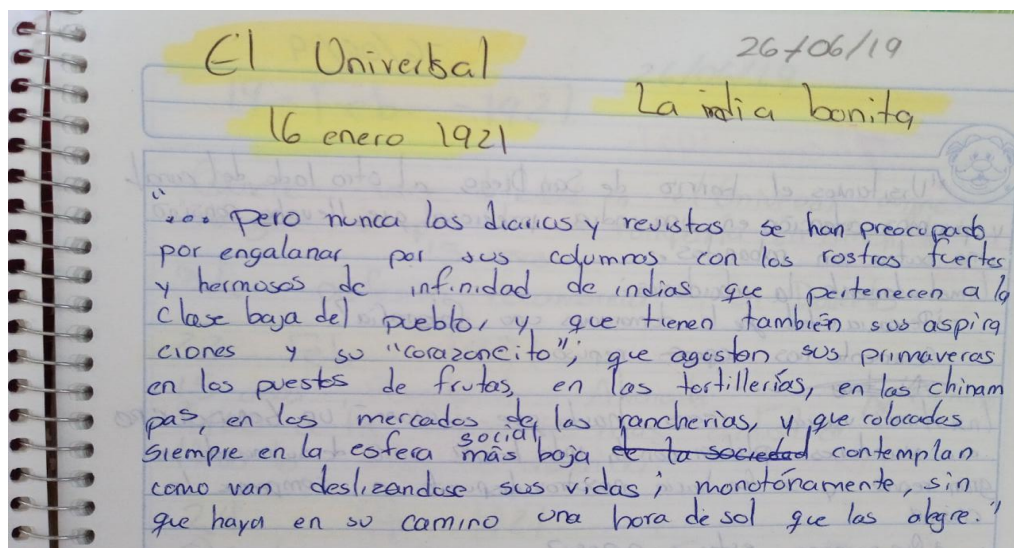 El Universal
26/06/19
La india bonita
16 enero 1921
"... pero nunca los diarios y revistas se han preocupado
por engalanar por sus columnas con los rostros fuertes
y hermosos de infinidad de indias que pertenecen a la
clase baja del pueblo, y que tienen también sus aspira
ciones y su "corazoncito"; que agostan sus primaveras
en los puestos de frutas, en las tortillerías, en las chinam
pas, en los mercados de las rancherias, y que colocadas
siempre en la esfera social más baja de la sociedad contemplan
como van deslizandose sus vidas; monotónamente, sin
que haya en su camino una hora de sol que las alegre."